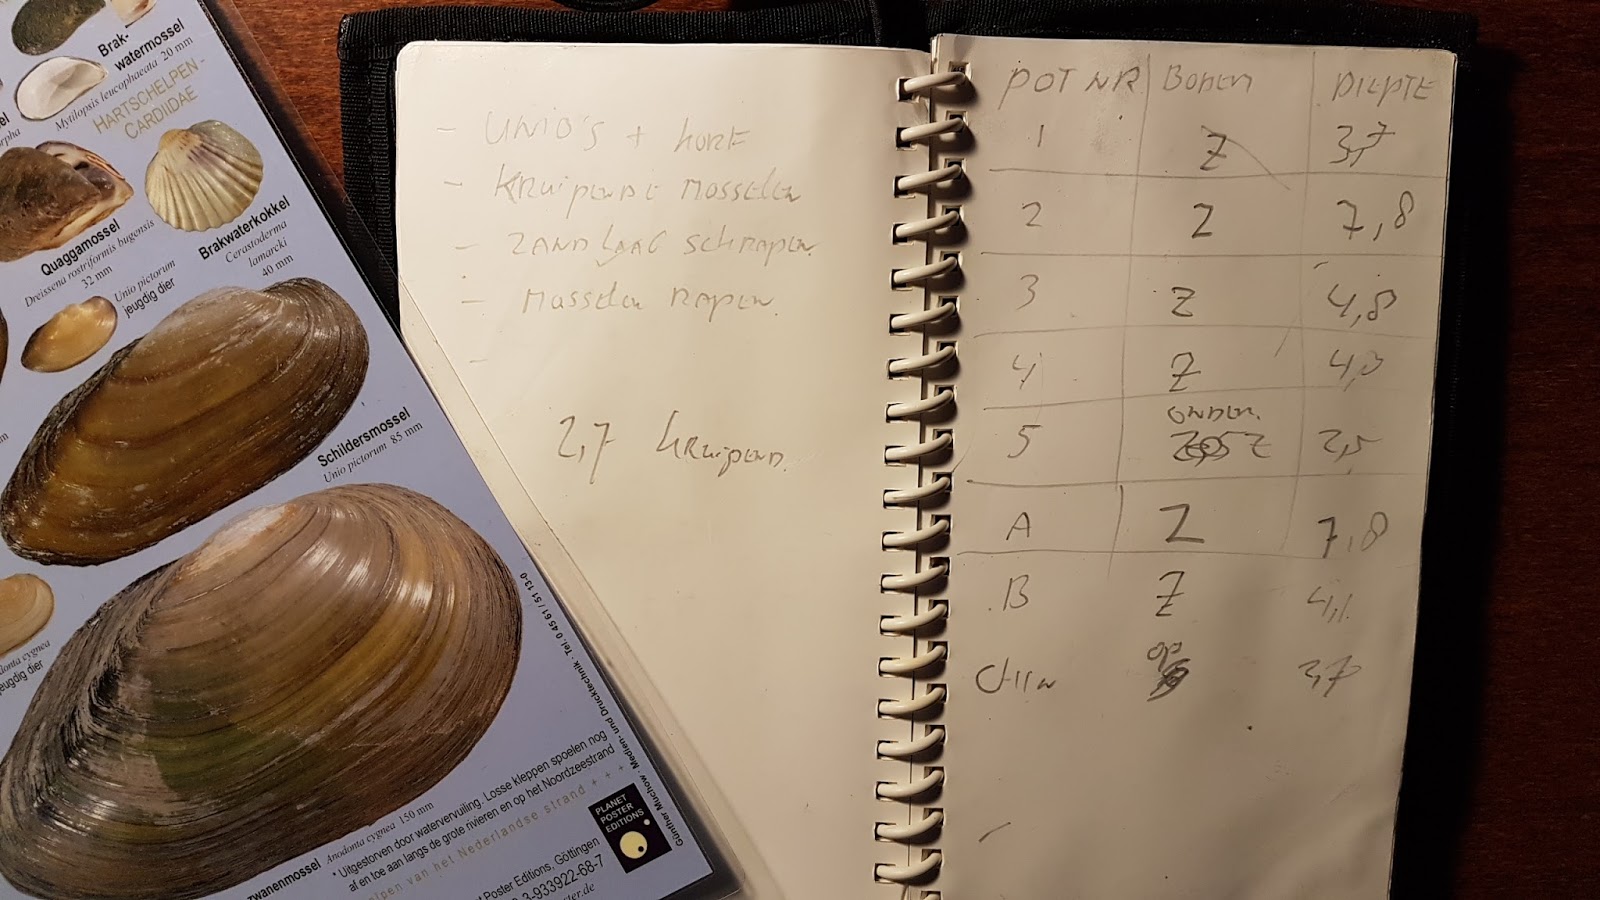 Brak-
watermossel
Mytilopsis leucophaeata 20 mm
HARTSCHELPEN -
CARDIIDAE
Quaggamossel
Dreissena rostriformis bugensis
32 mm
Brakwaterkokkel
Cerastoderma
lamarcki
40 mm
Unio pictorum
jeugdig dier
Schildersmossel
Unio pictorum 85 mm
cygnea
jeugdig dier
zwanenmossel Anodonta cygnea 150 mm
* Uitgestorven door watervervuiling. Losse kleppen spoelen nog
af en toe aan langs de grote rivieren en op het Noordzeestrand
van het Nederlandse strand + + +
Poster Editions, Göttingen
3-933922-68-7
PLANET
POSTER
EDITIONS
Günther Muchow · Medien- und Drucktechnik · Tel. 0 45 61 / 51 13-0
- UNIO'S + KORF
- KRUIPENDE MOSSELEN
- ZANDLAAG SCHRAPEN
- MOSSELEN RAPEN.
-
2,7 KRUIPEND.
POT NR BODEM DIEPTE
1 Z 3,7
2 Z 7,8
3 Z 4,8
4 Z
ONDER
5 Z 2,5
A Z 7,8
B Z 4,1
op